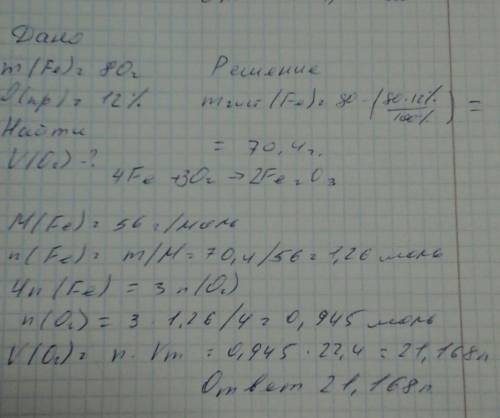 Дано
m(Fe) = 80г Решение
ω(пр) = 12% m чист (Fe) = 80 - (80·12% / 100%) =
Найти = 70,4г.
V(O₂) - ?
4Fe + 3O₂ → 2Fe₂O₃
M(Fe) = 56 г/моль
n(Fe) = m/M = 70,4/56 = 1,26 моль
4n(Fe) = 3n(O₂)
n(O₂) = 3 · 1,26/4 = 0,945 моль
V(O₂) = n · Vm = 0,945 · 22,4 = 21,168л
Ответ 21,168л